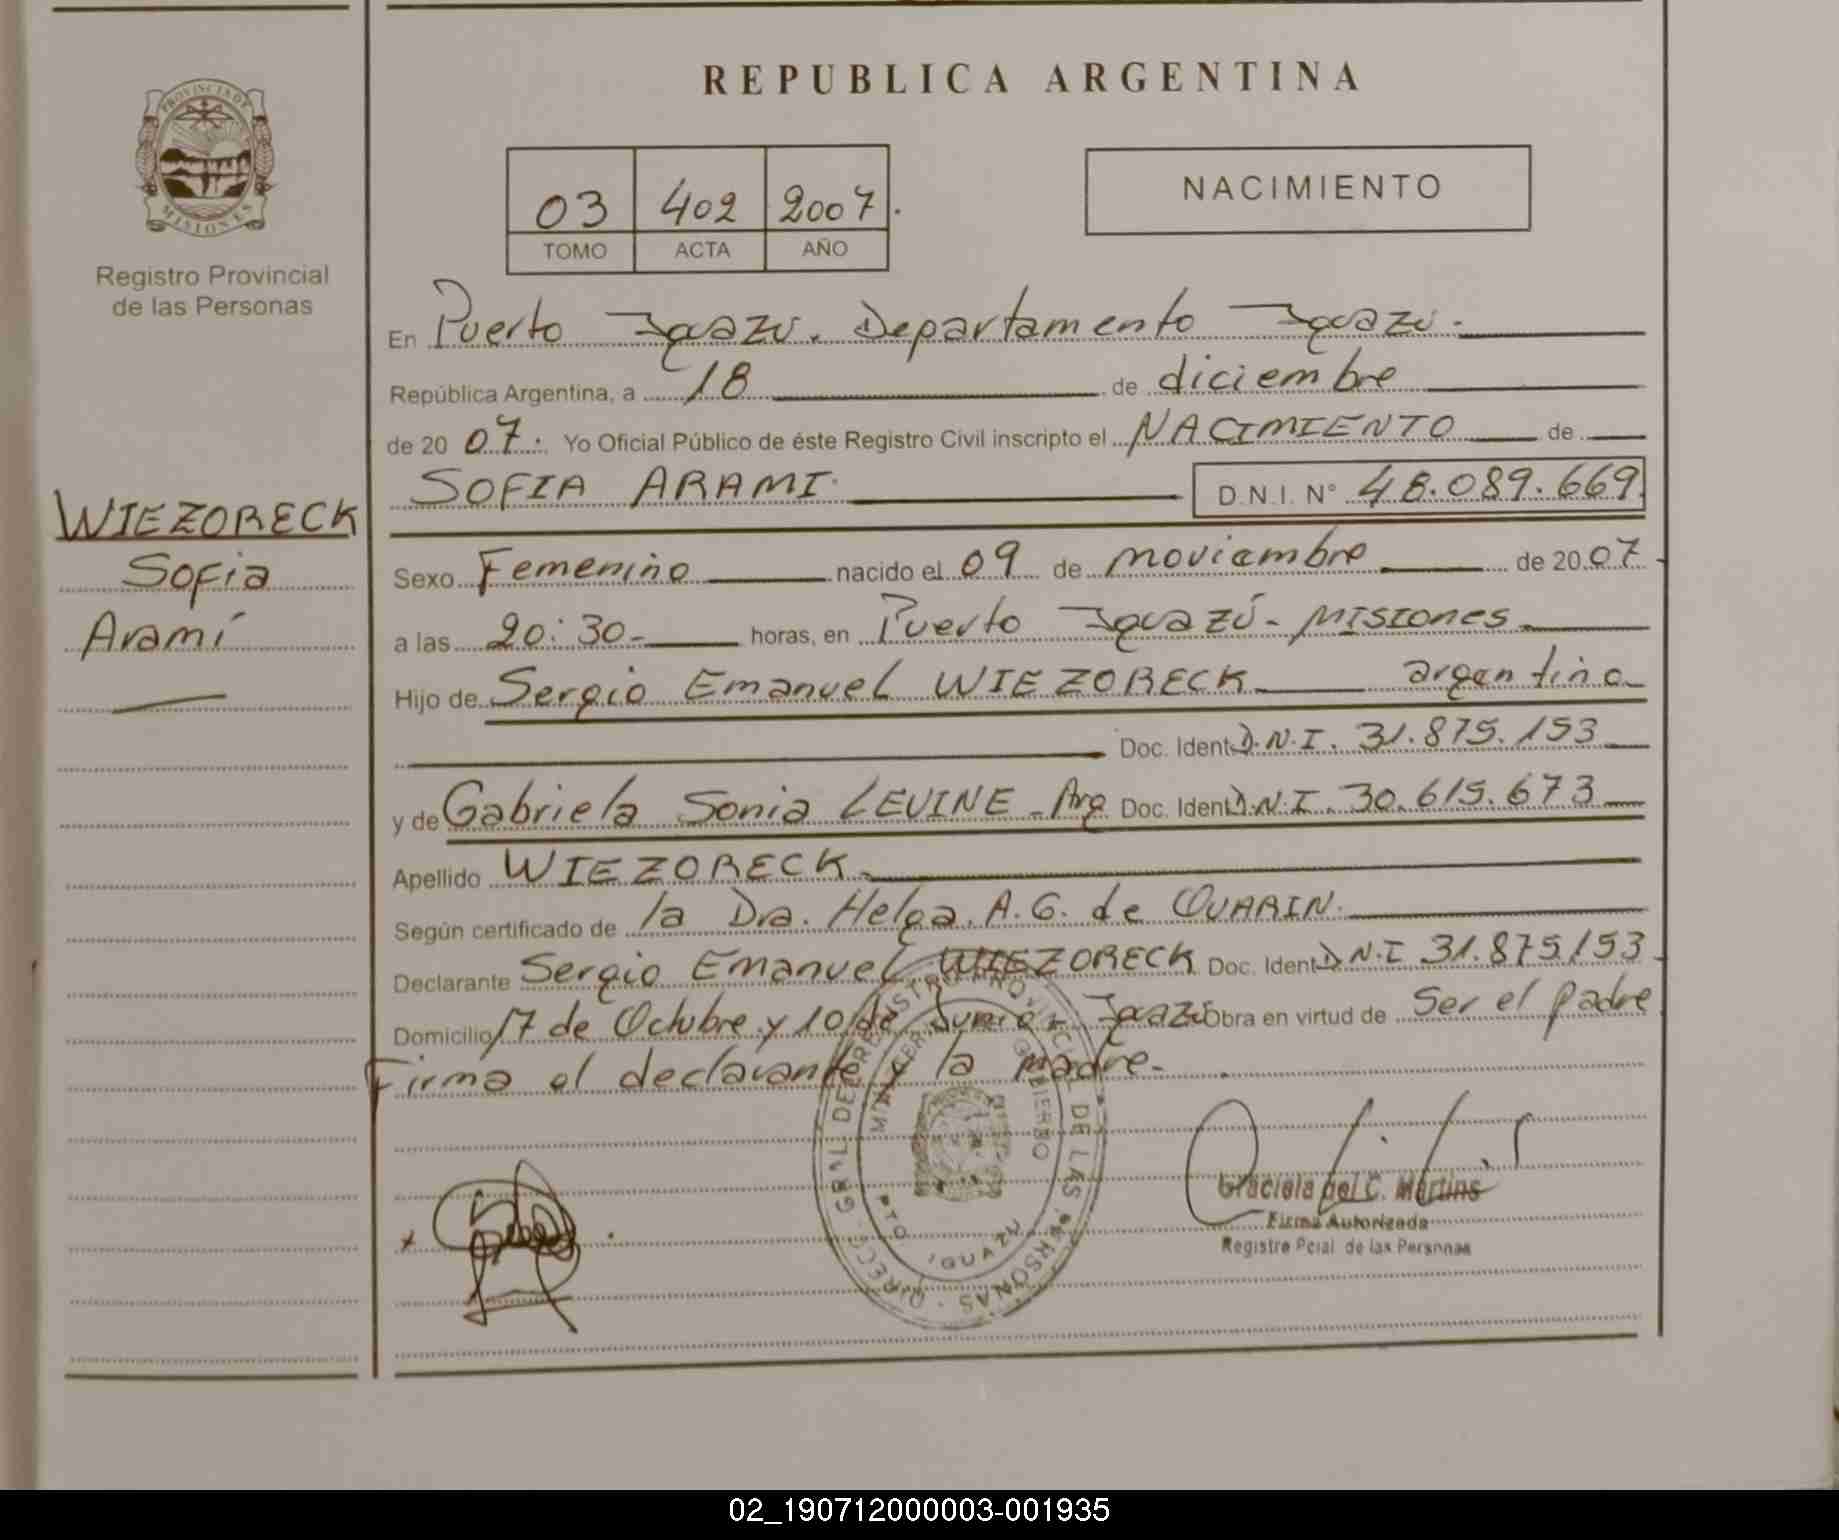 PROVINCIA DE
MISIONES
Registro Provincial
de las Personas
WIEZORECK
Sofia
Aramí
REPUBLICA ARGENTINA
03 402 2007.
TOMO ACTA AÑO
NACIMIENTO
En Puerto Iguazú. Departamento Iguazú.
República Argentina, a 18 de diciembre
de 20 07. Yo Oficial Público de éste Registro Civil inscripto el NACIMIENTO de
SOFIA ARAMI D.N.I. N° 48.089.669
Sexo Femenino nacido el 09 de noviembre de 20 07.
a las 20:30 horas, en Puerto Iguazú - MISIONES
Hijo de Sergio Emanuel WIEZORECK argentino
Doc. Ident D.N.I. 31.875.153
y de Gabriela Sonia LEVINE - Arg Doc. Ident D.N.I. 30.615.673
Apellido WIEZORECK
Según certificado de la Dra. Helga. A. G. de OUARIN.
Declarante Sergio Emanuel WIEZORECK Doc. Ident D.N.I 31.875.153
Domicilio 17 de Octubre y 10 de Junio - Iguazú Obra en virtud de Ser el padre
Firma el declarante y la madre.
DIRECC. GRAL DE REGISTRO PROVINCIAL DE LAS PERSONAS
GOBIERNO
PTO IGUAZU
Graciela del C. Martins
Firma Autorizada
Registro Pcial de las Personas
02_190712000003-001935